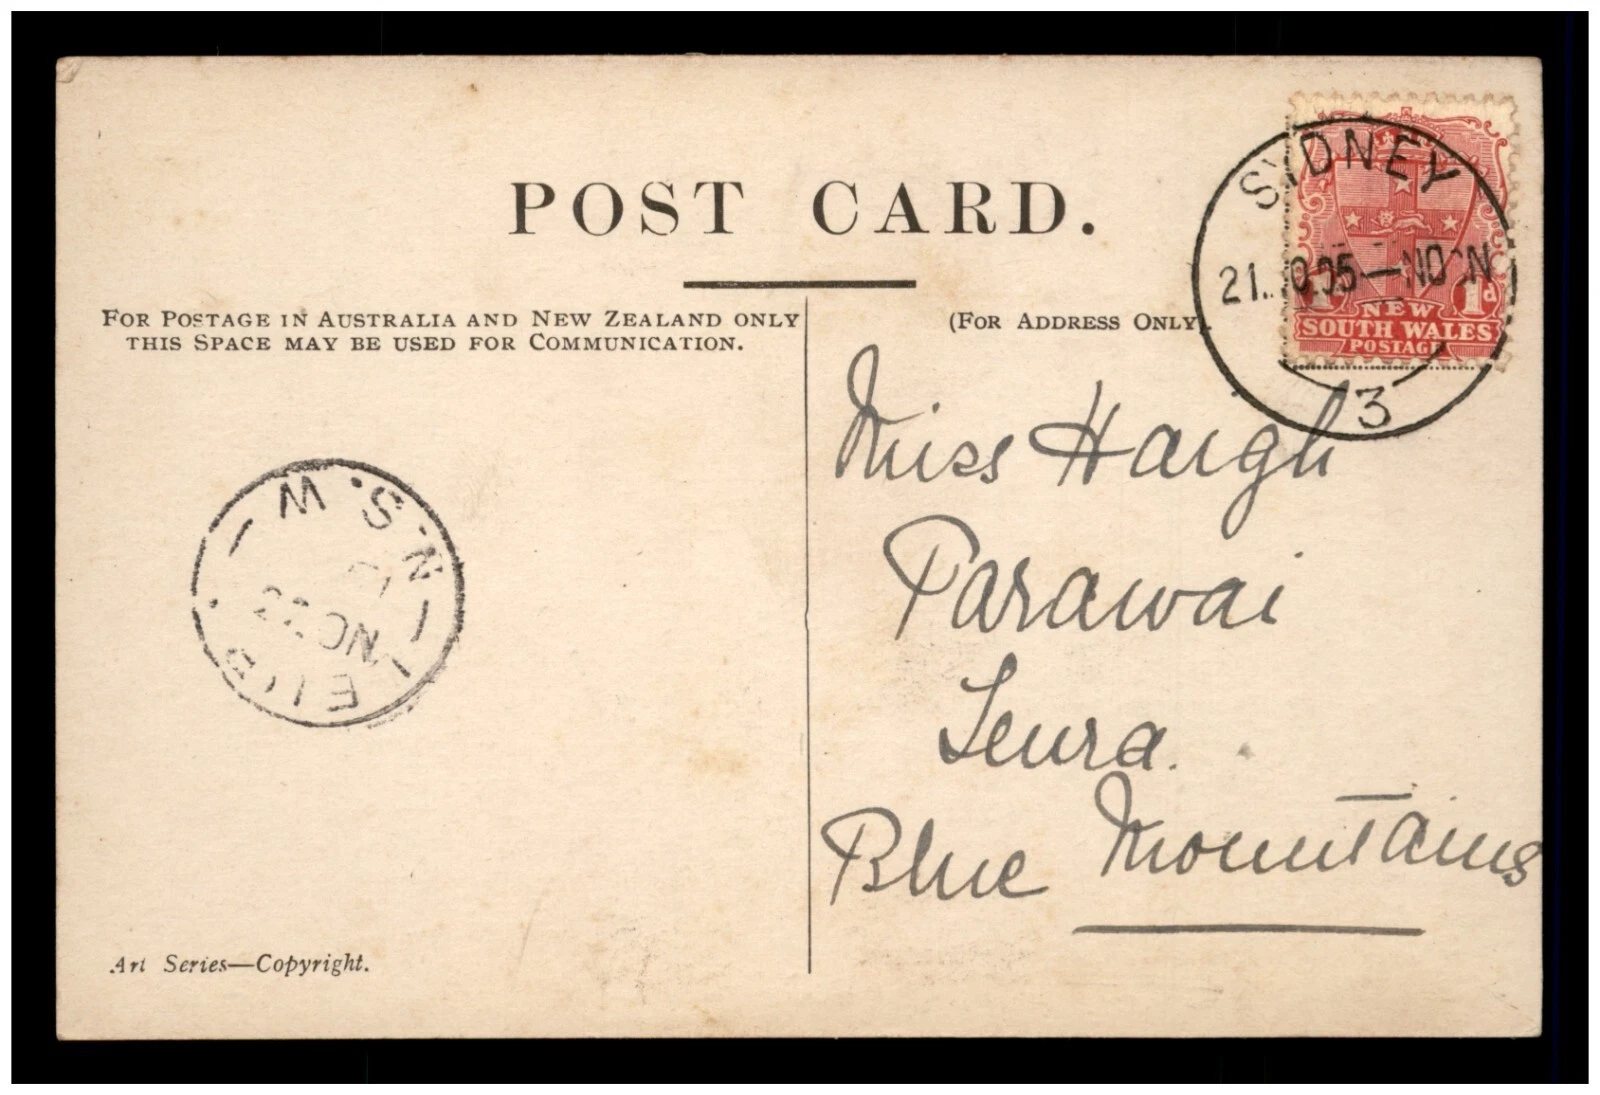 POST CARD.
FOR POSTAGE IN AUSTRALIA AND NEW ZEALAND ONLY
THIS SPACE MAY BE USED FOR COMMUNICATION.
(FOR ADDRESS ONLY).
SYDNEY
NOON
3
1d
NEW
SOUTH WALES
POSTAGE
Miss Haigh
Parawai
Leura.
Blue Mountains
N.S.W
Art Series—Copyright.